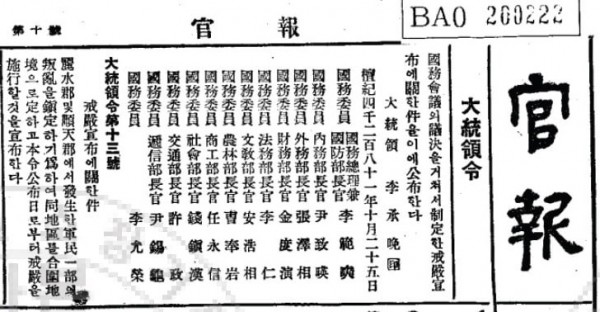 BA0 200222
第十號 官報
官報
大統領令
國務會議의議決을거쳐서制定한戒嚴宣
布에關한件을이에公布한다
大統領 李承晩
檀紀四千二百八十一年十月二十五日
國務總理兼
國務委員 國防部長官 李範奭
國務委員 內務部長官 尹致暎
國務委員 外務部長官 張澤相
國務委員 財務部長官 金度演
國務委員 法務部長官 李仁
國務委員 文敎部長官 安浩相
國務委員 農林部長官 曺奉岩
國務委員 商工部長官 任永信
國務委員 社會部長官 錢鎭漢
國務委員 交通部長官 許政
國務委員 遞信部長官 尹錫龜
國務委員 李允榮
大統領令第十三號
戒嚴宣布에關한件
麗水郡및順天郡에서發生한軍民一部의
叛亂을鎭定하기爲하여同地區를合圍地
境으로定하고本令公布日로부터戒嚴을
施行할것을宣布한다